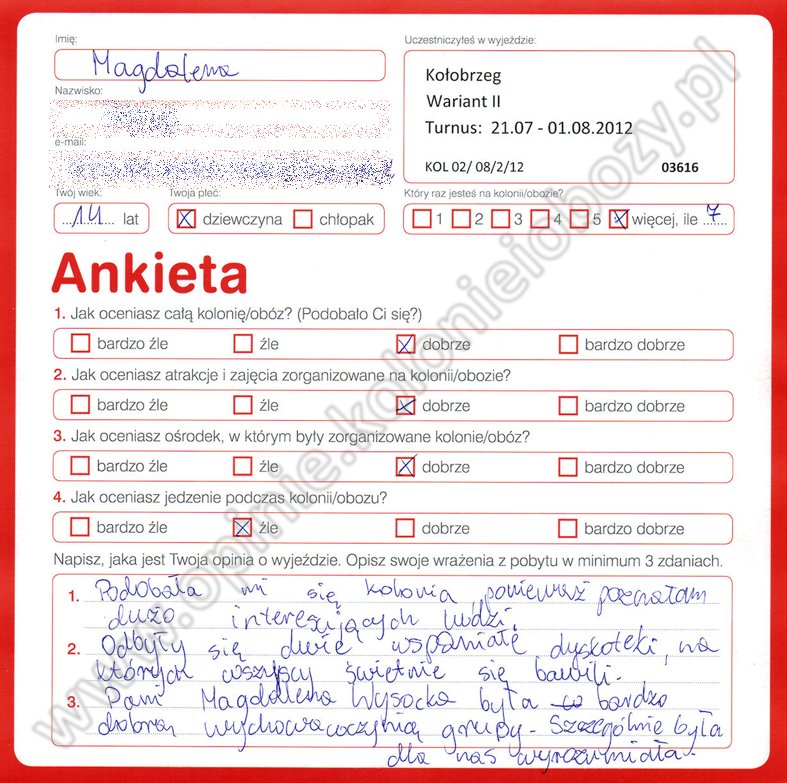 Imię:
Magdalena
Uczestniczyłeś w wyjeździe:
Kołobrzeg
Wariant II
Turnus: 21.07 - 01.08.2012
KOL 02/ 08/2/12 03616
Nazwisko:
e-mail:
Twój wiek:
14 lat
Twoja płeć:
X dziewczyna chłopak
Który raz jesteś na kolonii/obozie?
1 2 3 4 5 X więcej, ile 7
Ankieta
1. Jak oceniasz całą kolonię/obóz? (Podobało Ci się?)
bardzo źle źle X dobrze bardzo dobrze
2. Jak oceniasz atrakcje i zajęcia zorganizowane na kolonii/obozie?
bardzo źle źle X dobrze bardzo dobrze
3. Jak oceniasz ośrodek, w którym były zorganizowane kolonie/obóz?
bardzo źle źle X dobrze bardzo dobrze
4. Jak oceniasz jedzenie podczas kolonii/obozu?
bardzo źle X źle dobrze bardzo dobrze
Napisz, jaka jest Twoja opinia o wyjeździe. Opisz swoje wrażenia z pobytu w minimum 3 zdaniach.
1. Podobała mi się kolonia, ponieważ poznałam
dużo interesujących ludzi.
2. Odbyły się dwie wspaniałe dyskoteki, na
których wszyscy świetnie się bawili.
3. Pani Magdalena Wysocka była bardzo
dobrą wychowawczynią grupy. Szczególnie była
dla nas wyrozumiała.
www.opinie.kolonieiobozy.pl